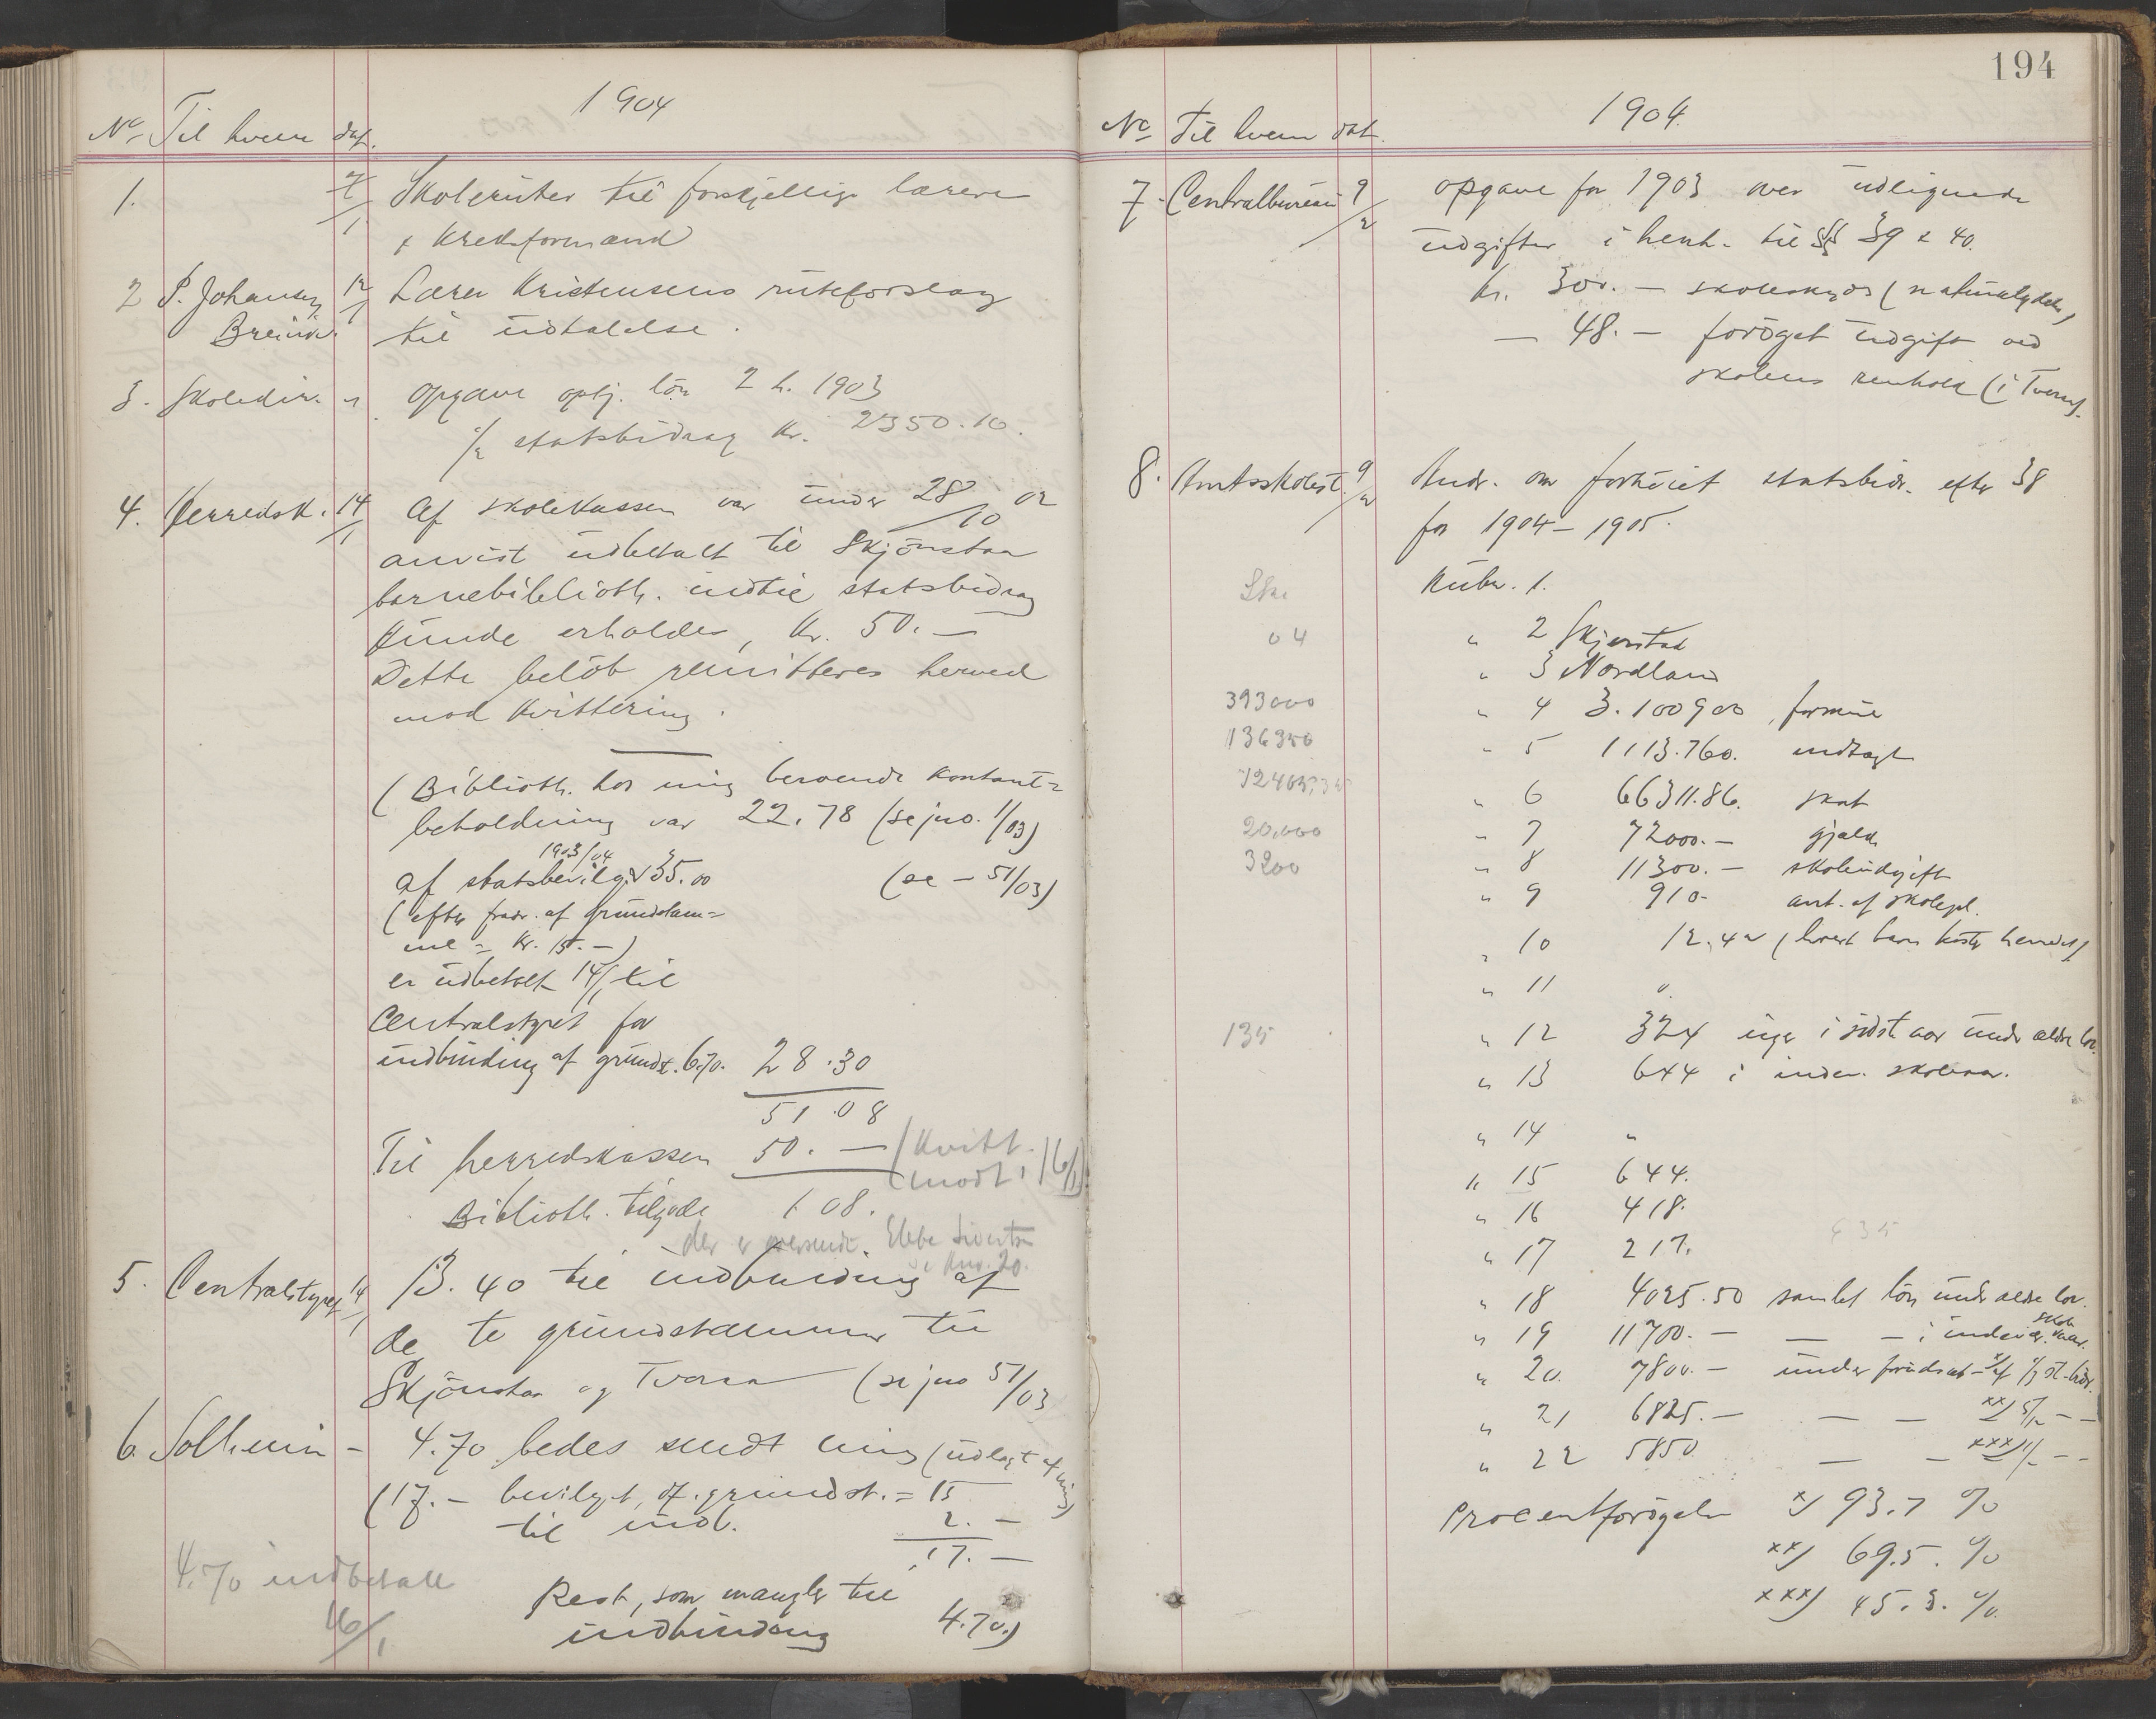 1904
No Til hvem dat.
1. 7/1 Skoleruter til forskjellige lærere
& Kredsformænd
2 P. Johansen 12/1 Lærer Kristensens ruteforslag
Breivik. til udtalelse.
3. Skoledir. " Opgave optj. løn 2 h. 1903
statsbidrag Kr. 2350.10.
4. Herredsk. 14/1 Af skolekassen var under 28/10 02
anvist udbetalt til Skjönstaa
barnebiblioth. indtil statsbidrag
kunde erholdes, Kr. 50.—
Dette beløb remitteres herved
mod kvittering.
(Biblioth. hos mig beroende kontant=
beholdning var 22.78 (se jno. 1/03)
1903/04
af statsbevilgn. 35.00 (se — 51/03)
(efter fradr. af grundstam=
me = Kr. 15.—)
er udbetalt 14/1 til
Centralstyret for
indbinding af grundst. 6.70. 28.30
51.08
Til herredskassen 50.— (Kvitt.
modt. 16/1)
Biblioth. tilgode 1 08.
der er oversendt. Ebbe Sivertsen
se kno. 20.
5. Centralstyret 14/1 13.40 til indbinding af
de to grundstammer til
Skjönstaa og Tveraa (se jno 51/03
6. Solhem — 4.70 bedes sendt mig (udlagt af mig)
(17.— bevilget, of. grundst. = 15
til indb. 2.—
17.—
4.70 indbetalt
16/1
Rest, som mangler til
indbinding 4.70.)
194
1904.
No Til hvem dat.
7. Centralbureau 9/2 Opgave for 1903 over udlignede
udgifter i henh. til §§ 39 & 40.
Kr. 300.— skoleskyds (naturalydelse)
— 48.— forøget udgift ved
skolens renhold (i Tveraa).
8. Amtsskolest. 9/2 Andr. om forhøiet statsbidr. efter 38
for 1904–1905.
Rubr. 1.
04 " 2 Skjerstad
" 3 Nordland
393000 " 4 3.100900, formue
136350 " 5 1113.760. indtægt
" 6 66311.86. skat
20,000 " 7 72000.— gjæld
3200 " 8 11300.— skoleudgift
" 9 910- ant. af skolepl.
" 10 12.42 (hvert barn koster herredet)
" 11 "
135 " 12 324 uger i sidst aar under ældre lov.
" 13 644 i indev. skoleaar.
" 14 "
" 15 644.
" 16 418.
" 17 217. 635
" 18 4025.50 samlet løn under ældre lov.
" 19 11700.— — — i indevær. skoleaar.
" 20. 7800.— under forudsat- x) af 1/3 st-bidr.
" 21 6825.— — — xx) 5/12 — —
" 22 5850 — — xxx) 1/2 — —
Procentforøgelse x) 93.7 %
xx) 69.5. %
xxx) 45.3. %